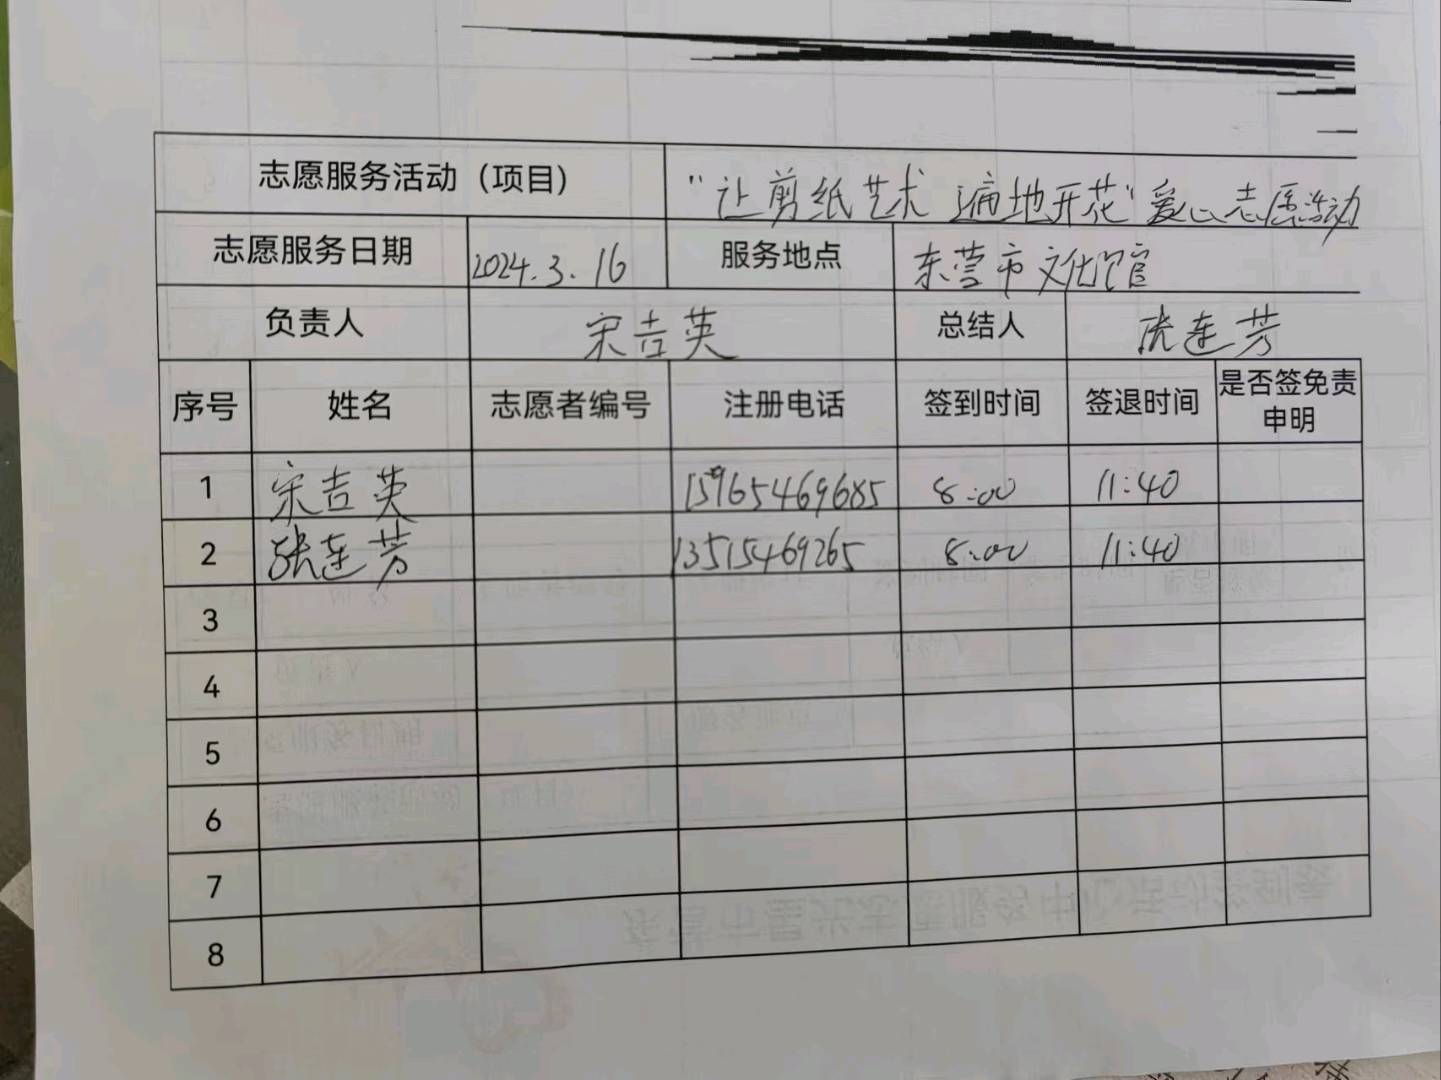 志愿服务活动（项目） "让剪纸艺术遍地开花"爱心志愿活动
志愿服务日期 2024.3.16 服务地点 东营市文化馆
负责人 宋吉英 总结人 张连芳
序号 姓名 志愿者编号 注册电话 签到时间 签退时间 是否签免责申明
1 宋吉英 15965469685 8:00 11:40
2 张连芳 13515469265 8:00 11:40
3
4
5
6
7
8